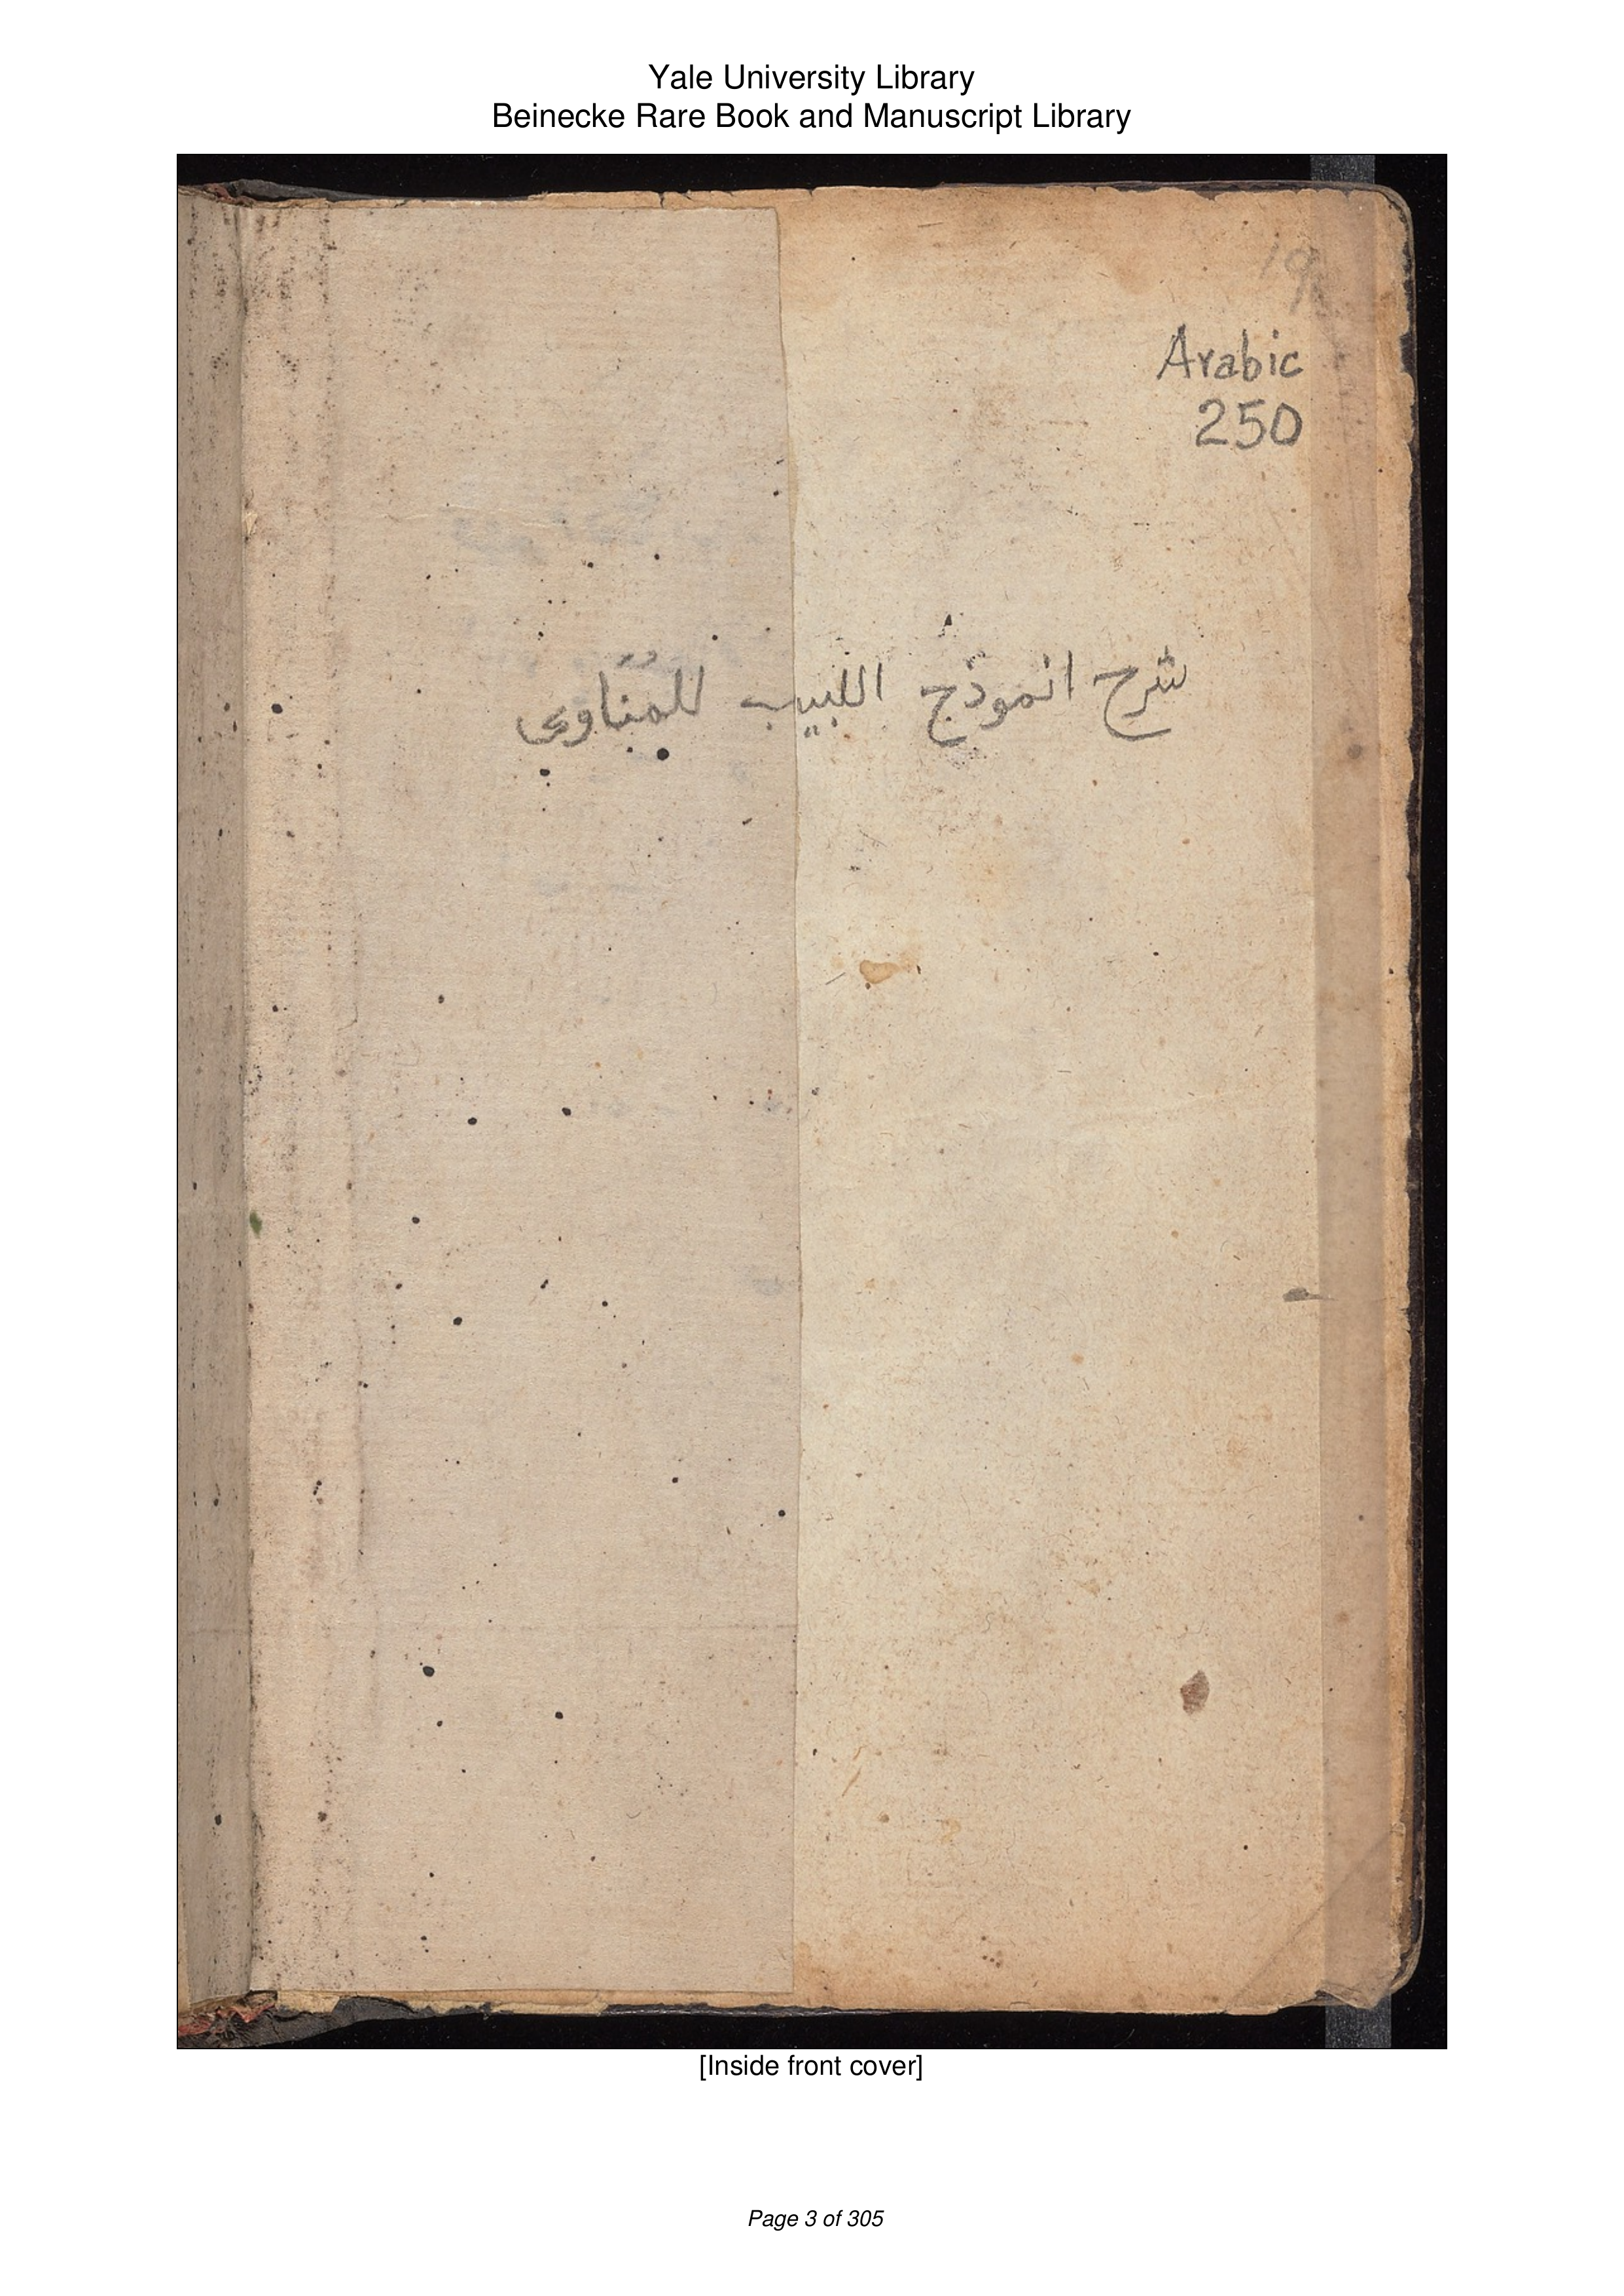 Yale University Library
Beinecke Rare Book and Manuscript Library
Arabic
250
شرح انموذج اللبيب للمناوى
[Inside front cover]
Page 3 of 305